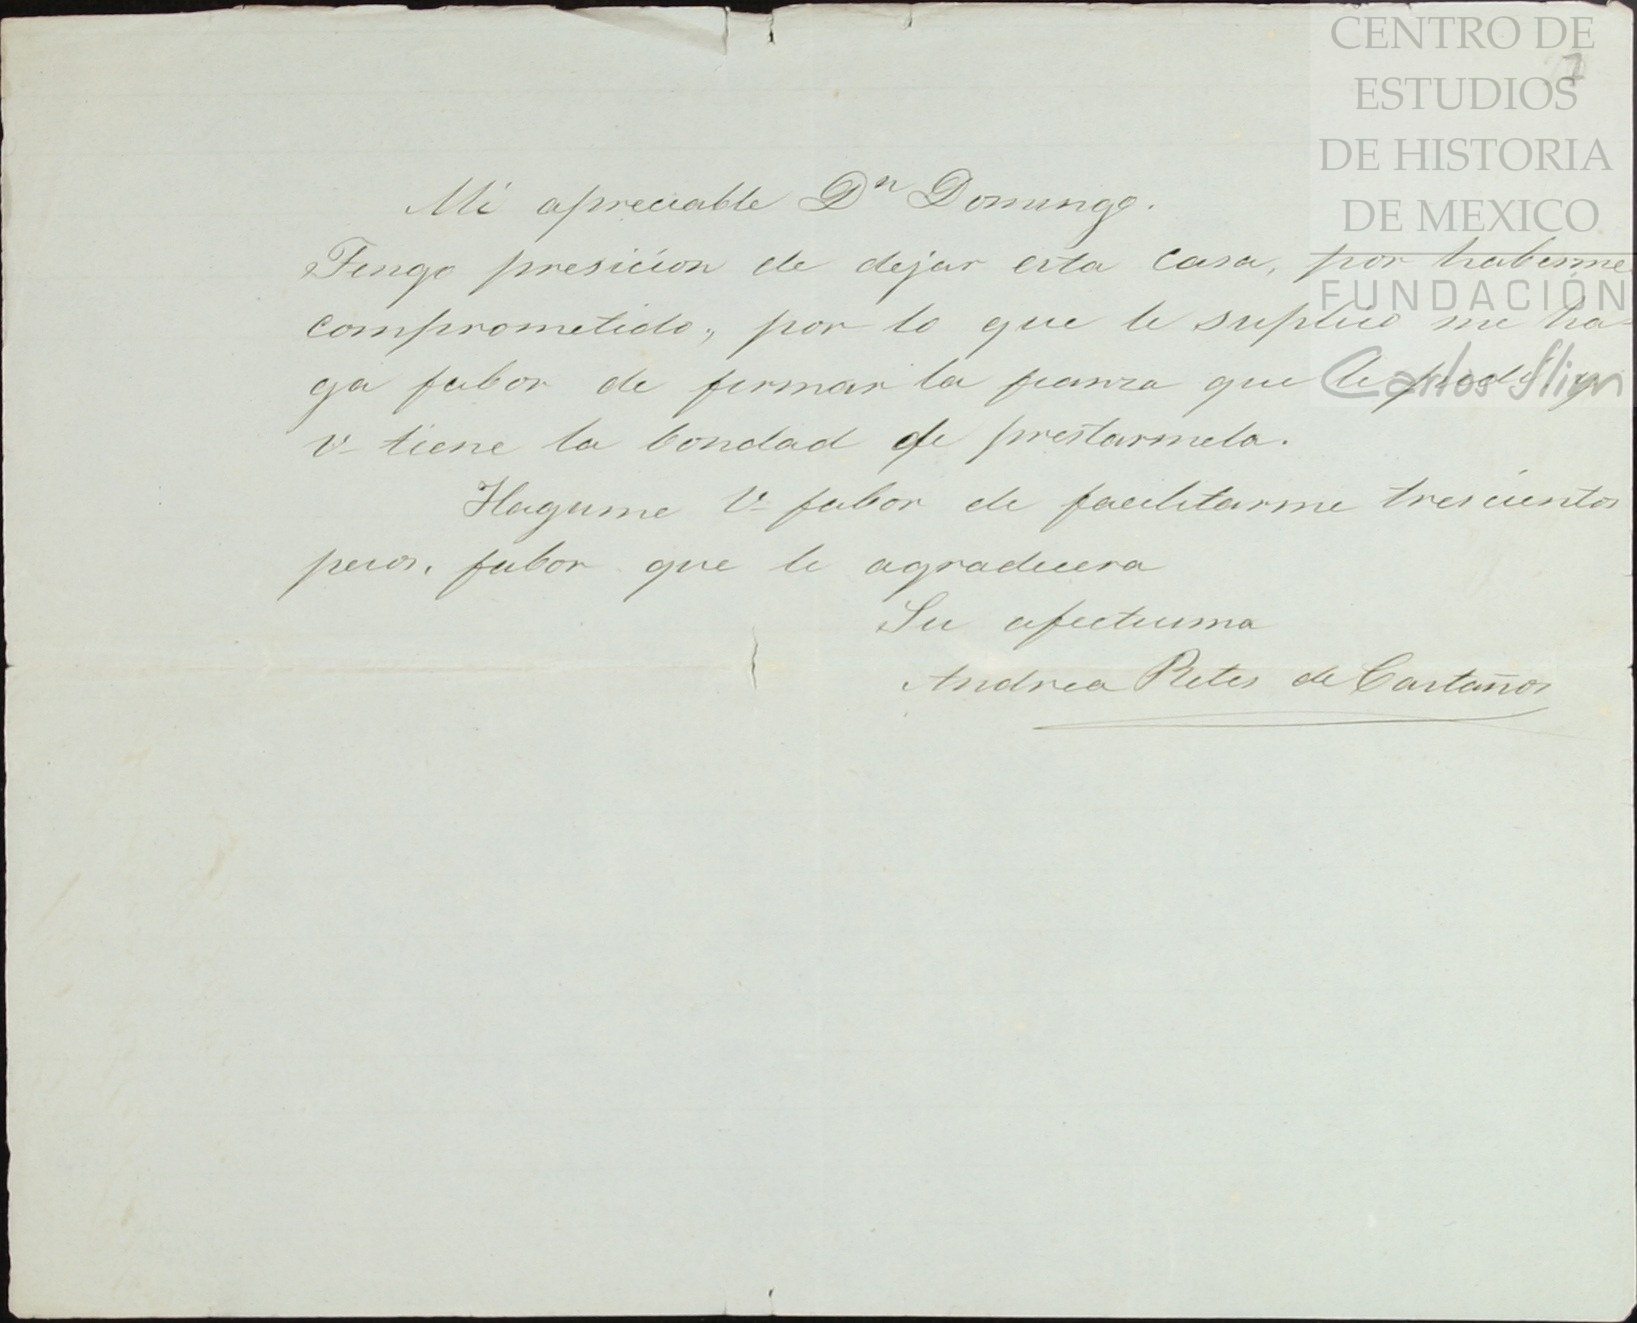 CENTRO DE
ESTUDIOS
DE HISTORIA
DE MEXICO
FUNDACIÓN
Carlos Slim
Mi apreciable Dⁿ Domingo.
Tengo presicion de dejar esta casa, por haberme
comprometido, por lo que le suplico me ha-
ga fabor de firmar la fianza que le pedi, y
V. tiene la bondad de prestarmela.
Hagame V. fabor de facilitarme trescientos
pesos, fabor que le agradecera
Su afectisima
Andrea Retes de Castaños